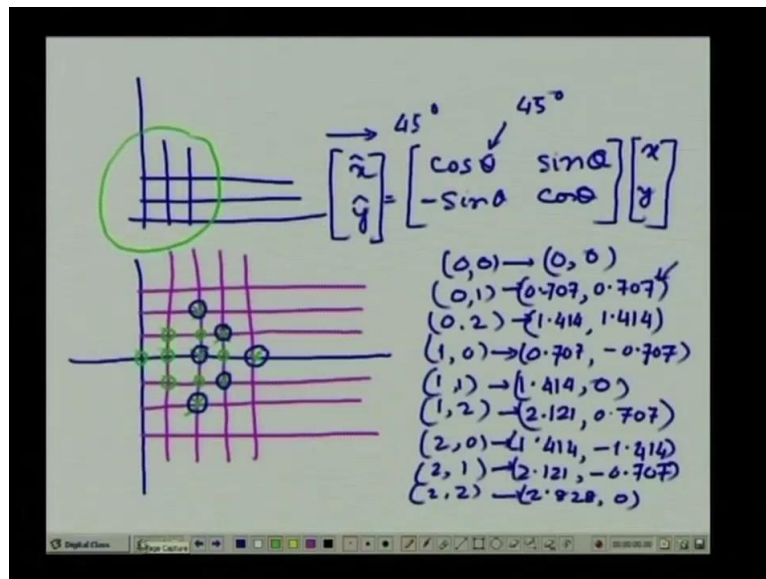 45° 45°
[x̂ ŷ] = [cosθ sinθ -sinθ cosθ] [x y]
(0,0)→(0,0)
(0,1)→(0.707, 0.707)
(0,2)→(1.414, 1.414)
(1,0)→(0.707, -0.707)
(1,1)→(1.414, 0)
(1,2)→(2.121, 0.707)
(2,0)→(1.414, -1.414)
(2,1)→(2.121, -0.707)
(2,2)→(2.828, 0)
Digital Class Page Capture 00:00:00.00